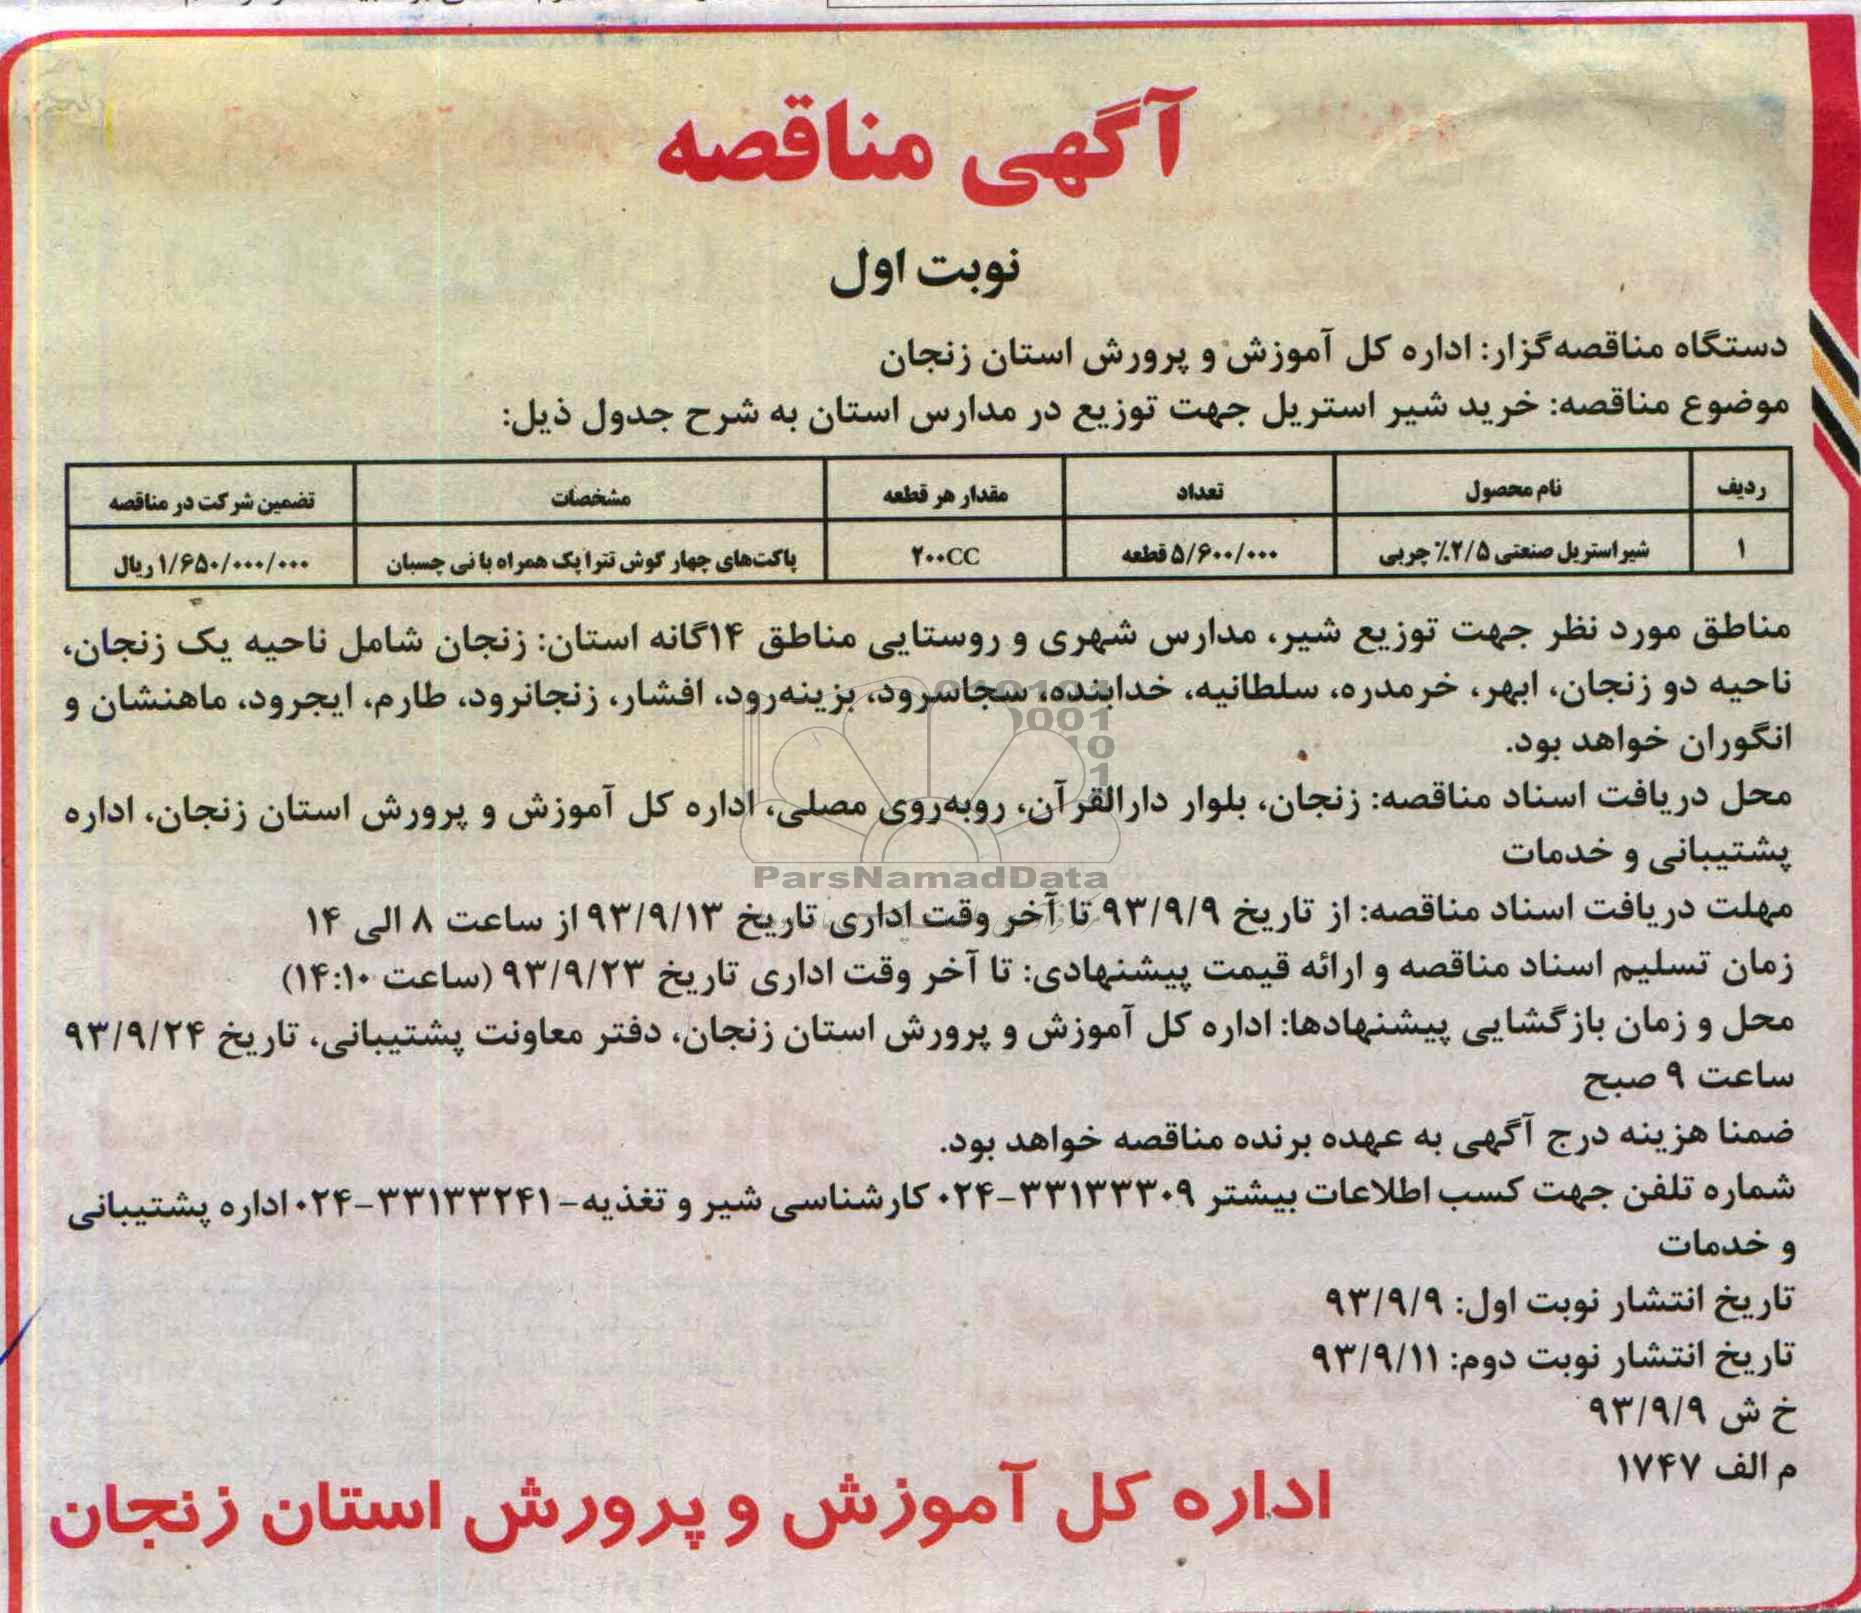 آگهی مناقصه
نوبت اول
دستگاه مناقصه‌گزار: اداره کل آموزش و پرورش استان زنجان
موضوع مناقصه: خرید شیر استریل جهت توزیع در مدارس استان به شرح جدول ذیل:
ردیف نام محصول تعداد مقدار هر قطعه مشخصات تضمین شرکت در مناقصه
۱ شیر استریل صنعتی ۲/۵٪ چربی ۵/۶۰۰/۰۰۰ قطعه ۲۰۰CC پاکت‌های چهار گوش تتراپک همراه با نی چسبان ۱/۶۵۰/۰۰۰/۰۰۰ ریال
مناطق مورد نظر جهت توزیع شیر، مدارس شهری و روستایی مناطق ۱۴گانه استان: زنجان شامل ناحیه یک زنجان،
ناحیه دو زنجان، ابهر، خرمدره، سلطانیه، خدابنده، سجاسرود، بزینه‌رود، افشار، زنجانرود، طارم، ایجرود، ماهنشان و
انگوران خواهد بود.
محل دریافت اسناد مناقصه: زنجان، بلوار دارالقرآن، روبه‌روی مصلی، اداره کل آموزش و پرورش استان زنجان، اداره
پشتیبانی و خدمات
ParsNamadData
مهلت دریافت اسناد مناقصه: از تاریخ ۹۳/۹/۹ تا آخر وقت اداری تاریخ ۹۳/۹/۱۳ از ساعت ۸ الی ۱۴
زمان تسلیم اسناد مناقصه و ارائه قیمت پیشنهادی: تا آخر وقت اداری تاریخ ۹۳/۹/۲۳ (ساعت ۱۴:۱۰)
محل و زمان بازگشایی پیشنهادها: اداره کل آموزش و پرورش استان زنجان، دفتر معاونت پشتیبانی، تاریخ ۹۳/۹/۲۴
ساعت ۹ صبح
ضمنا هزینه درج آگهی به عهده برنده مناقصه خواهد بود.
شماره تلفن جهت کسب اطلاعات بیشتر ۳۳۱۳۳۳۰۹-۰۲۴ کارشناسی شیر و تغذیه- ۳۳۱۳۳۲۴۱-۰۲۴ اداره پشتیبانی
و خدمات
تاریخ انتشار نوبت اول: ۹۳/۹/۹
تاریخ انتشار نوبت دوم: ۹۳/۹/۱۱
خ ش ۹۳/۹/۹
م الف ۱۷۴۷
اداره کل آموزش و پرورش استان زنجان